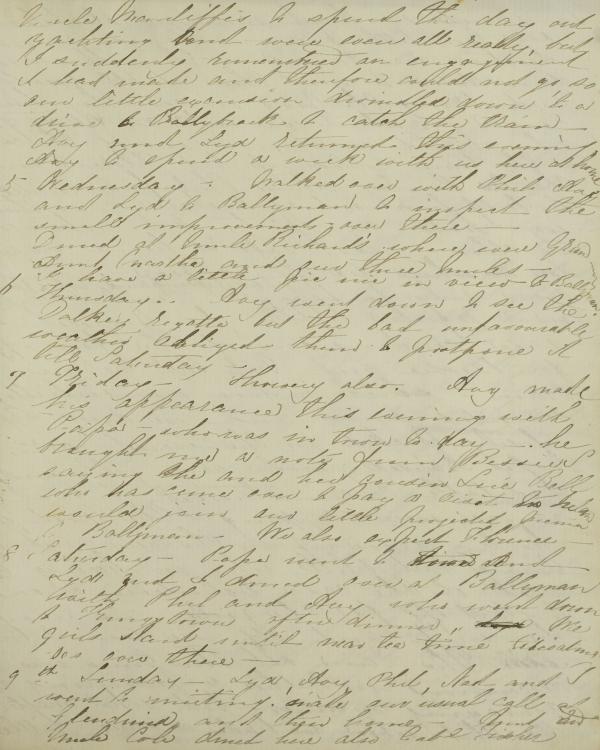 Uncle Wandliffes to spend the day out
yachting and were even all ready, but
I suddenly remembered an engagement
I had made and therefore could not go so
our little excursion dwindled down to a
drive to Ballybrack to catch the train —
Avy and Lyd returned this evening
Avy to spend a week with us here at home
5 Wednesday — Walked over with Phil Avy
and Lyd to Ballyman to inspect the
small improvements over there —
Dined at Uncle Richards where were Gran
Aunt Martha and our three Uncles —
I have a little pic nic in view to Bally
6 Thursday. Avy went down to see the
Dalkey regatta but the bad unfavourable
weather obliged them to postpone it
till Saturday
7 Friday — Showery also. Avy made
his appearance this evening with
Papa — who was in town to day — he
brought me a note from Bessie
saying she and her cousin Lucie Ball
who has come over to pay a visit to
would join our little projected
Ballyman — We also expect Florence —
8 Saturday — Papa went to and
Lyd and I dined over at Ballyman
with Phil and Avy who went down
to Kingstown after dinner, We
girls staid until near tea time
over there —
9th Sunday — Lyd, Avy Phil, Ned and I
went to meeting. made our usual call at
and then home — Aunt and
Uncle Cole dined here also